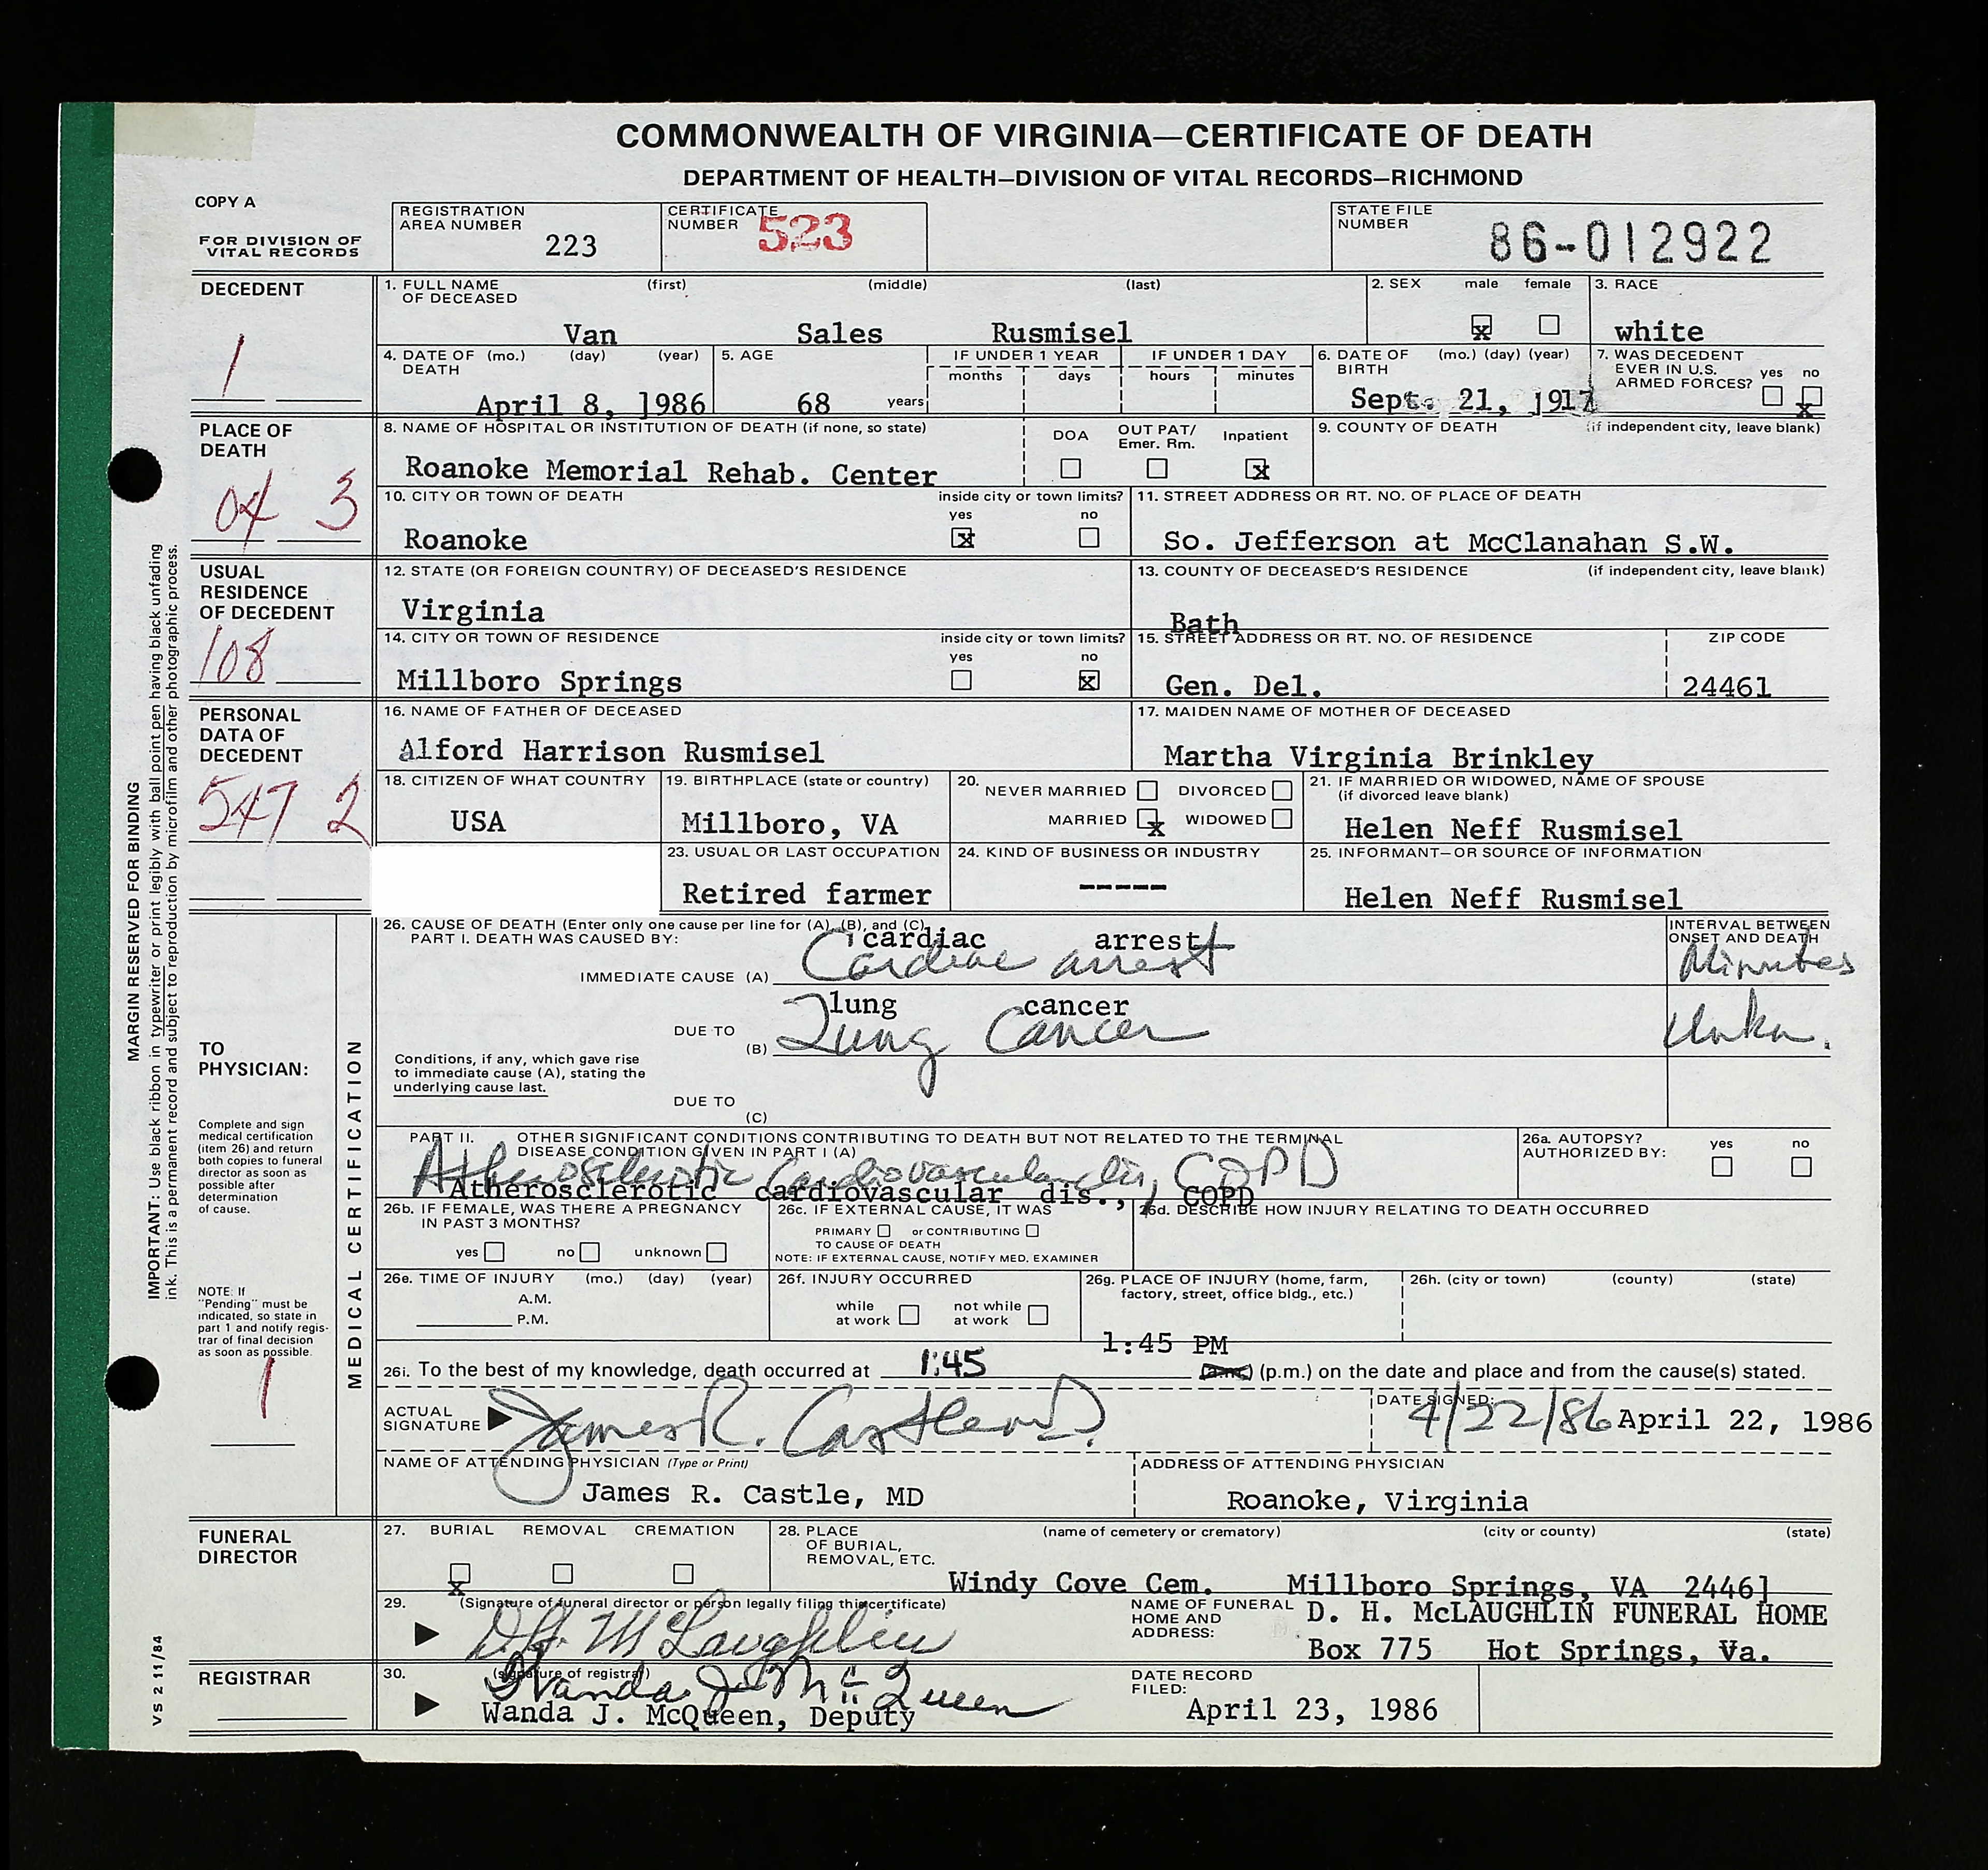 COMMONWEALTH OF VIRGINIA—CERTIFICATE OF DEATH
DEPARTMENT OF HEALTH—DIVISION OF VITAL RECORDS—RICHMOND
COPY A
FOR DIVISION OF
VITAL RECORDS
REGISTRATION
AREA NUMBER
223
CERTIFICATE
NUMBER
523
STATE FILE
NUMBER
86-012922
DECEDENT
1
1. FULL NAME
OF DECEASED
(first) (middle) (last)
Van Sales Rusmisel
2. SEX male female
x
3. RACE
white
4. DATE OF (mo.) (day) (year)
DEATH
April 8, 1986
5. AGE
68 years
IF UNDER 1 YEAR
months days
IF UNDER 1 DAY
hours minutes
6. DATE OF (mo.) (day) (year)
BIRTH
Sept. 21, 1917
7. WAS DECEDENT
EVER IN U.S.
ARMED FORCES?
yes no
x
PLACE OF
DEATH
04 3
8. NAME OF HOSPITAL OR INSTITUTION OF DEATH (if none, so state)
Roanoke Memorial Rehab. Center
DOA
OUT PAT/
Emer. Rm.
Inpatient
x
9. COUNTY OF DEATH (if independent city, leave blank)
10. CITY OR TOWN OF DEATH
inside city or town limits?
yes no
Roanoke x
11. STREET ADDRESS OR RT. NO. OF PLACE OF DEATH
So. Jefferson at McClanahan S.W.
USUAL
RESIDENCE
OF DECEDENT
108
12. STATE (OR FOREIGN COUNTRY) OF DECEASED'S RESIDENCE
Virginia
13. COUNTY OF DECEASED'S RESIDENCE (if independent city, leave blank)
Bath
14. CITY OR TOWN OF RESIDENCE
inside city or town limits?
yes no
Millboro Springs x
15. STREET ADDRESS OR RT. NO. OF RESIDENCE
Gen. Del.
ZIP CODE
24461
PERSONAL
DATA OF
DECEDENT
547 2
16. NAME OF FATHER OF DECEASED
Alford Harrison Rusmisel
17. MAIDEN NAME OF MOTHER OF DECEASED
Martha Virginia Brinkley
18. CITIZEN OF WHAT COUNTRY
USA
19. BIRTHPLACE (state or country)
Millboro, VA
20.
NEVER MARRIED DIVORCED
MARRIED x WIDOWED
21. IF MARRIED OR WIDOWED, NAME OF SPOUSE
(if divorced leave blank)
Helen Neff Rusmisel
23. USUAL OR LAST OCCUPATION
Retired farmer
24. KIND OF BUSINESS OR INDUSTRY
-----
25. INFORMANT—OR SOURCE OF INFORMATION
Helen Neff Rusmisel
MARGIN RESERVED FOR BINDING
IMPORTANT: Use black ribbon in typewriter or print legibly with ball point pen having black unfading
ink. This is a permanent record and subject to reproduction by microfilm and other photographic process.
TO
PHYSICIAN:
Complete and sign
medical certification
(item 26) and return
both copies to funeral
director as soon as
possible after
determination
of cause.
NOTE: If
"Pending" must be
indicated, so state in
part 1 and notify regis-
trar of final decision
as soon as possible.
1
MEDICAL CERTIFICATION
26. CAUSE OF DEATH (Enter only one cause per line for (A), (B), and (C)
PART I. DEATH WAS CAUSED BY:
cardiac arrest
IMMEDIATE CAUSE (A) Cardiac arrest
INTERVAL BETWEEN
ONSET AND DEATH
Minutes
lung cancer
DUE TO
(B) Lung Cancer
Unkn.
Conditions, if any, which gave rise
to immediate cause (A), stating the
underlying cause last.
DUE TO
(C)
PART II. OTHER SIGNIFICANT CONDITIONS CONTRIBUTING TO DEATH BUT NOT RELATED TO THE TERMINAL
DISEASE CONDITION GIVEN IN PART I (A)
Atherosclerotic Cardiovascular dis, COPD
Atherosclerotic cardiovascular dis., COPD
26a. AUTOPSY?
AUTHORIZED BY:
yes no
26b. IF FEMALE, WAS THERE A PREGNANCY
IN PAST 3 MONTHS?
yes no unknown
26c. IF EXTERNAL CAUSE, IT WAS
PRIMARY or CONTRIBUTING
TO CAUSE OF DEATH
NOTE: IF EXTERNAL CAUSE, NOTIFY MED. EXAMINER
26d. DESCRIBE HOW INJURY RELATING TO DEATH OCCURRED
26e. TIME OF INJURY (mo.) (day) (year)
A.M.
P.M.
26f. INJURY OCCURRED
while
at work
not while
at work
26g. PLACE OF INJURY (home, farm,
factory, street, office bldg., etc.)
26h. (city or town) (county) (state)
1:45 PM
26i. To the best of my knowledge, death occurred at 1:45 (a.m.) (p.m.) on the date and place and from the cause(s) stated.
ACTUAL
SIGNATURE
James R. Castle MD.
DATE SIGNED:
4/22/86 April 22, 1986
NAME OF ATTENDING PHYSICIAN (Type or Print)
James R. Castle, MD
ADDRESS OF ATTENDING PHYSICIAN
Roanoke, Virginia
FUNERAL
DIRECTOR
27. BURIAL REMOVAL CREMATION
x
28. PLACE
OF BURIAL,
REMOVAL, ETC.
(name of cemetery or crematory) (city or county) (state)
Windy Cove Cem. Millboro Springs, VA 24461
29. (Signature of funeral director or person legally filing this certificate)
D.H. McLaughlin
NAME OF FUNERAL
HOME AND
ADDRESS:
D. H. McLAUGHLIN FUNERAL HOME
Box 775 Hot Springs, Va.
REGISTRAR
30. (signature of registrar)
Wanda J. McQueen
Wanda J. McQueen, Deputy
DATE RECORD
FILED:
April 23, 1986
VS 2 11/84